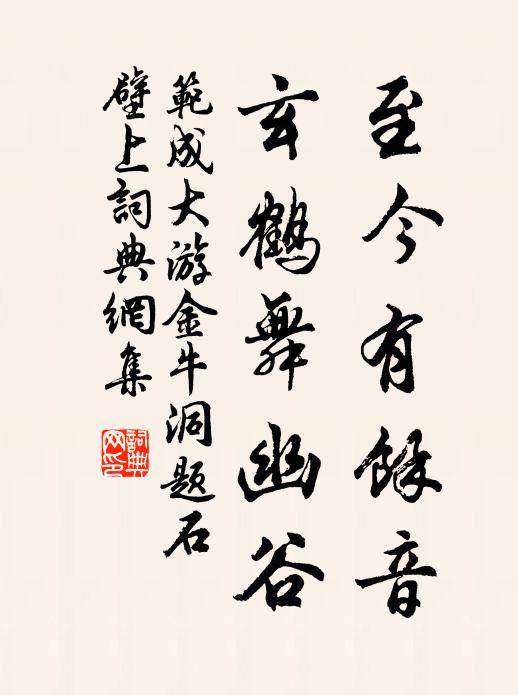 至今有餘音
玄鶴舞幽谷
範成大游金牛洞題石
壁上詞典網集
詞典
网印